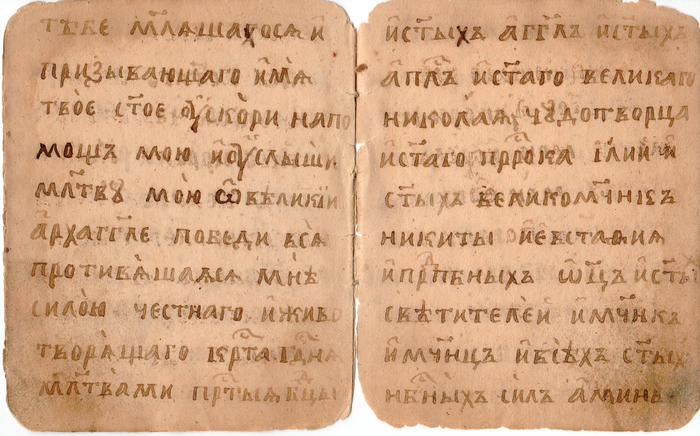 тѣбе мл҃ѧшагосѧ и҆
призывающаго и҆мѧ
твое ст҃ое ᲂускори напо
мощъ мою иᲂуслыши
мл҃твꙋ мою ѿвѣликїи
а҆рхагг҃ле победи всѧ
противѧшаѧсѧ мнѣ
силою честнаго и҆живо
творѧщаго кр҃та гд҃нѧ
мл҃твами пр҃тыѧ бц҃ы
и҆ст҃ыхъ агг҃лъ ист҃ыхъ
а҆пл҃ъ ист҃аго великаго
николаѧ чꙋдотворца
и҆ст҃аго пр҃рока і҆лии
ст҃ыхъ великомч҃никъ
никиты и҆евстаѳиѧ
и҆прпⷣбныхъ ѡ҃цъ ист҃ы
свѣтителеи и҆мч҃никъ
и҆мч҃нцъ ивсѣхъ ст҃ых
нбⷭ҇ныхъ силъ аминь